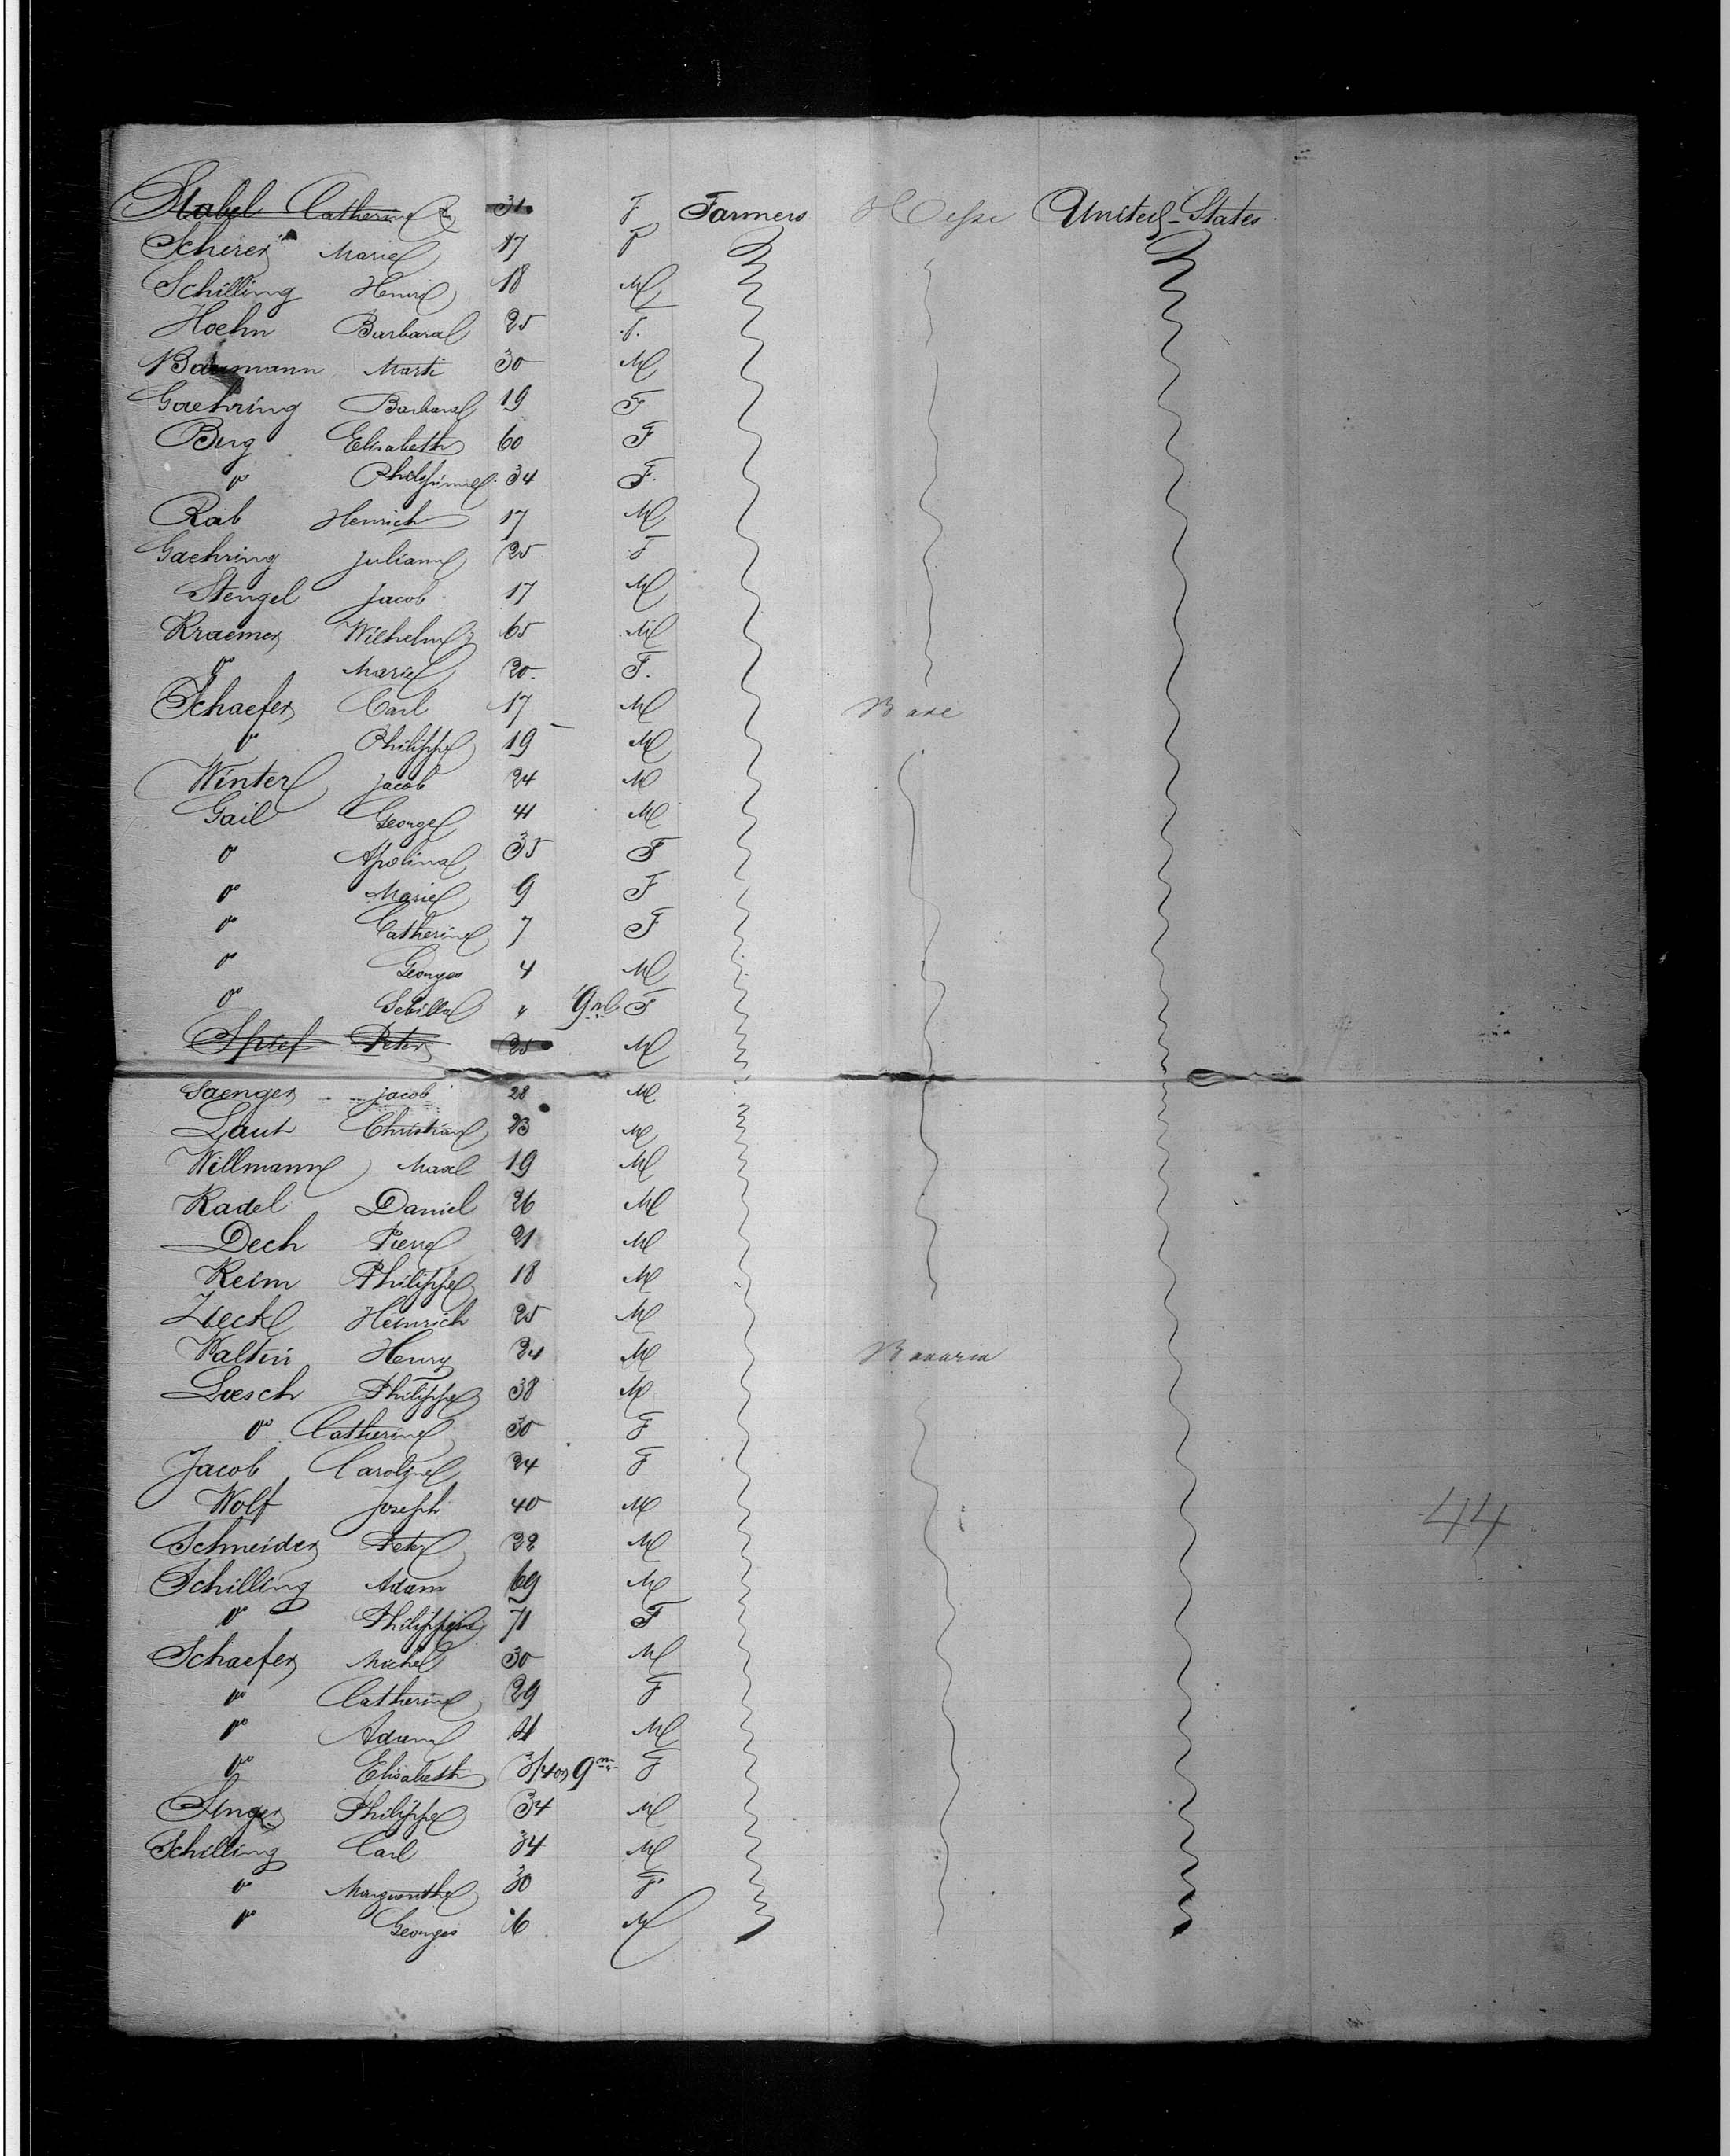 Stabel Catherine 31 F Farmers Hesse United-States
Scherer Marie 17 F
Schilling Henri 18 M
Hoehn Barbara 25 F.
Baumann Marti 30 M
Goehring Barbara 19 F
Berg Elisabeth 60 F
" Philippine 34 F.
Rab Henrich 17 M
Gaehring Juliann 25 F
Stengel Jacob 17 M
Kraemer Wilhelm 65 M
" Marie 20. F.
Schaefer Carl 17 M
" Philippe 19 M
Winter Jacob 24 M
Gail George 41 M
" Apolina 35 F
" Marie 9 F
" Catherine 7 F
" Georges 4 M
" Sebilla " 9 F
Peter 25 M
Saenger Jacob 28 M
Laut Christian 23 M
Willmann 19 M
Kadel Daniel 26 M
Dech Pierre 21 M
Keim Philippe 18 M
Zieckl Heinrich 25 M
Waltin Henry 24 M Bavaria
Loesch Philippe 38 M
" Catherine 30 F
Jacob Caroline 24 F
Wolf Joseph 40 M 44
Schneider Peter 22 M
Schilling Adam 69 M
" Philippine 71 F
Schaefer Michel 30 M
" Catherine 29 F
" Adam 4 M
" Elisabeth 3/4 or 9 m F
Singer Philippe 34 M
Schilling Carl 34 M
" Marguerithe 30 F
" Georges 6 M